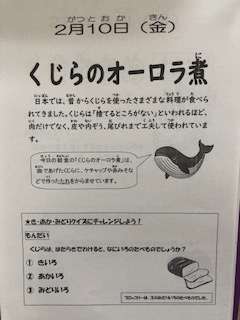 2月10日(金)
くじらのオーロラ煮
日本では、昔からくじらを使ったさまざまな料理が食べら
れてきました。くじらは「捨てるところがない」といわれるほど、
肉だけでなく、皮や内ぞう、尾びれまで工夫して使われていま
す。
今日の給食の「くじらのオーロラ煮」は、
油であげたくじらに、ケチャップや赤みそな
どで作ったたれをからませています。
★き・あか・みどりクイズにチャレンジしよう!
もんだい
くじらは、はたらきでわけると、なにいろのたべものでしょうか?
① きいろ
② あかいろ
③ みどりいろ